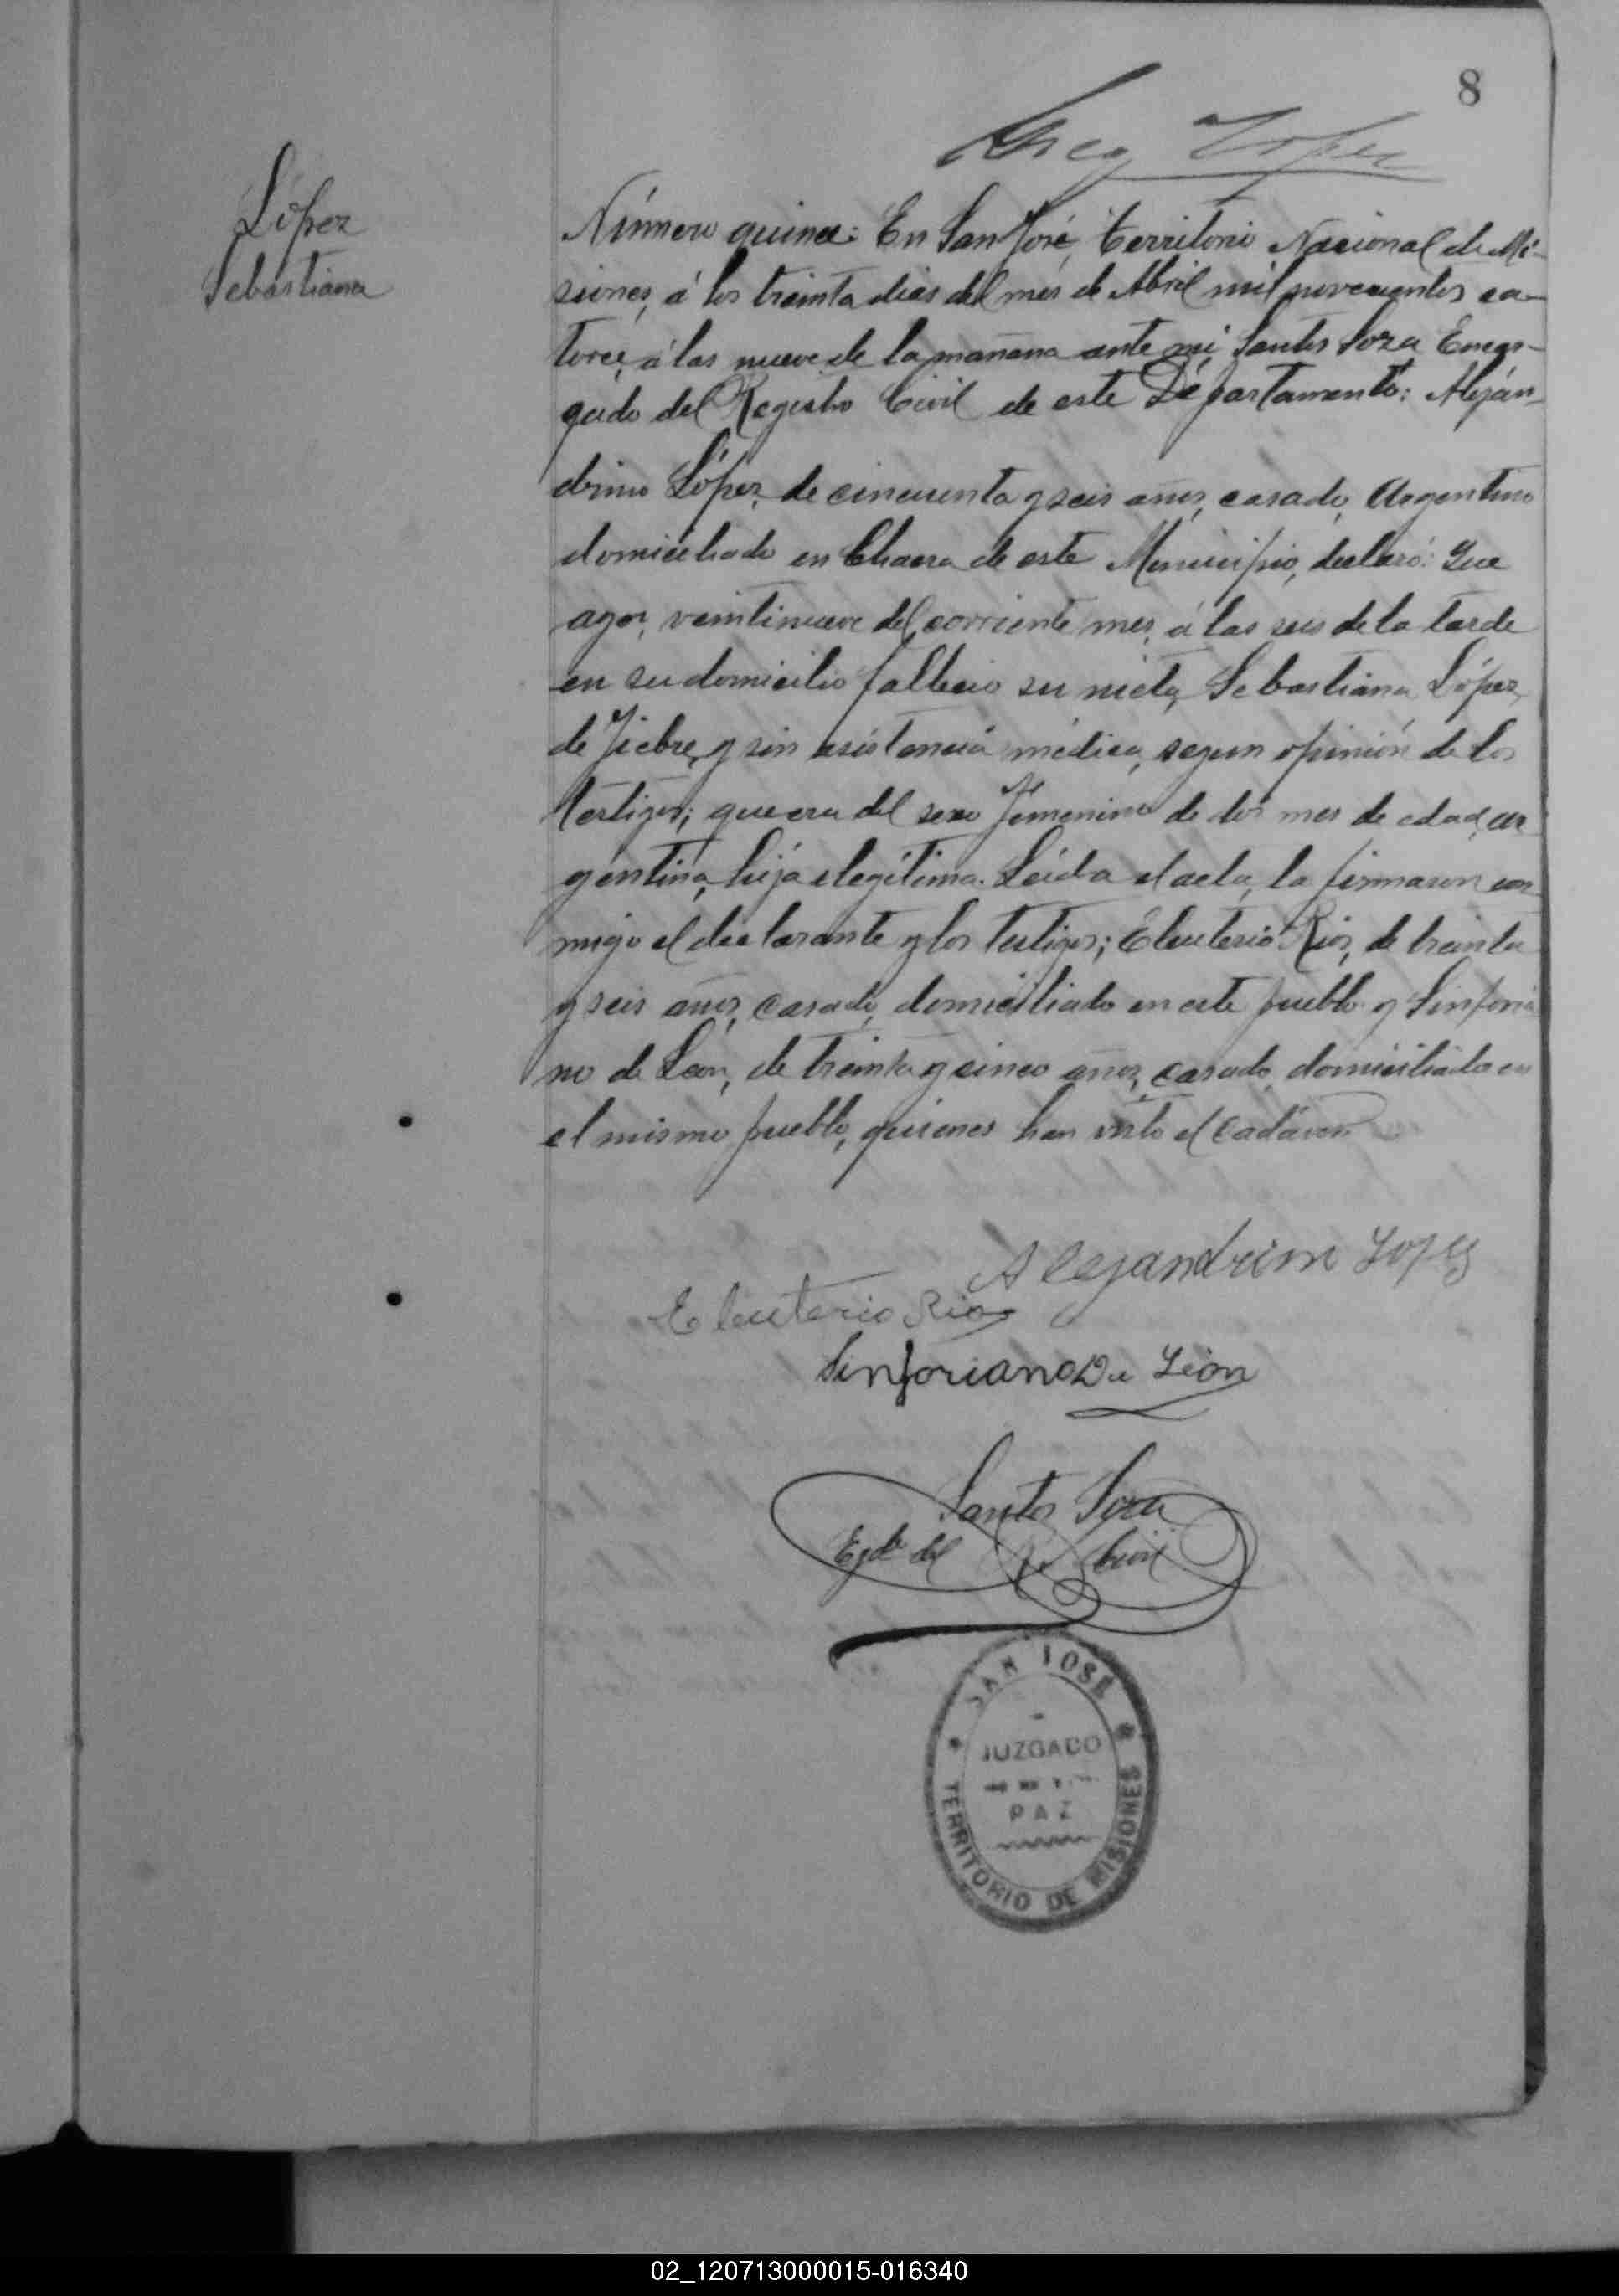 8
López
Sebastiana
Número quince: En San José, territorio Nacional de Mi-
siones, á los treinta dias del mes de Abril mil novecientos ca-
torce, á las nueve de la mañana ante mi Santos Soza Encar-
gado del Registro Civil de este Departamento: Aleján-
drino López, de cincuenta y seis años, casado, Argentino
domiciliado en Chacra de este Municipio, declaró: Que
ayer, veintinueve del corriente mes, á las seis de la tarde
en su domicilio fallecio su nieta, Sebastiana López,
de Fiebre, y sin asistencia médica, segun opinión de los
testigos; que era del sexo Femenino de dos mes de edad, ar
gentina, hija elegítima. Leída el acta, la firmaron con
migo el declarante y los testigos; Eleuterio Rios, de treinta
y seis años, casado, domiciliado en este pueblo y Sinforia
no de León, de treinta y cinco años, casado, domiciliado en
el mismo pueblo, quienes han visto el cadáver
Alejandrino Lopez
Eleuterio Rios
Sinforiano De León
Santos Soza
Egdo del R. Civil
SAN JOSÉ
JUZGADO
PAZ
TERRITORIO DE MISIONES
02_120713000015-016340